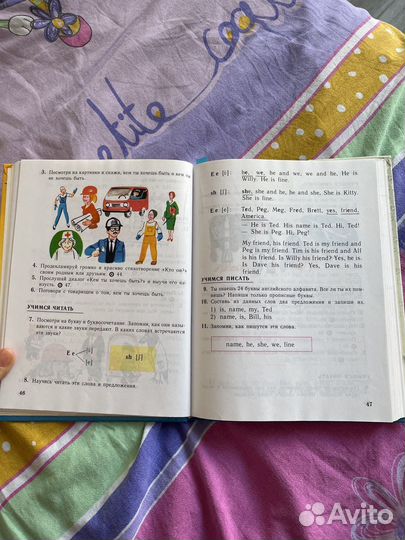 3. Посмотри на картинки и скажи, кем ты хочешь быть и кем ты
не хочешь быть.
4. Продекламируй громко и красиво стихотворение «Кто он?»
своим родным или друзьям. 44
5. Прослушай диалог «Кем ты хочешь быть?» и выучи его на-
изусть. 47
6. Поговори с товарищем о том, кем ты хочешь быть.
УЧИМСЯ ЧИТАТЬ
7. Посмотри на букву и буквосочетание. Запомни, как они назы-
ваются и какие звуки передают. В каких словах встречаются
эти звуки?
E e
[i:]
[e]
sh [ʃ]
8. Научись читать эти слова и предложения.
46
E e [i:] he, we, he and we, we and he. He is
Willy. He is fine.
sh [ʃ] she, she and he, he and she. She is Kitty.
She is fine.
E e [e] Ted, Peg, Meg, Fred, Brett, yes, friend,
America.
— He is Ted. His name is Ted. Hi, Ted!
She is Peg. Hi, Peg!
My friend, his friend. Ted is my friend and
Peg is my friend. Tim is his friend and Ali
is his friend. Is Willy his friend? Yes, he is.
Is Dave his friend? Yes, Dave is his
friend.
УЧИМСЯ ПИСАТЬ
9. Ты знаешь 26 букв английского алфавита. Все ли ты их пом-
нишь? Напиши только прописные буквы.
10. Составь из данных слов два предложения и запиши их.
1) is, name, my, Ted
2) name, is, Bill, his
11. Запомни, как пишутся эти слова.
name, he, she, we, line
47
Avito